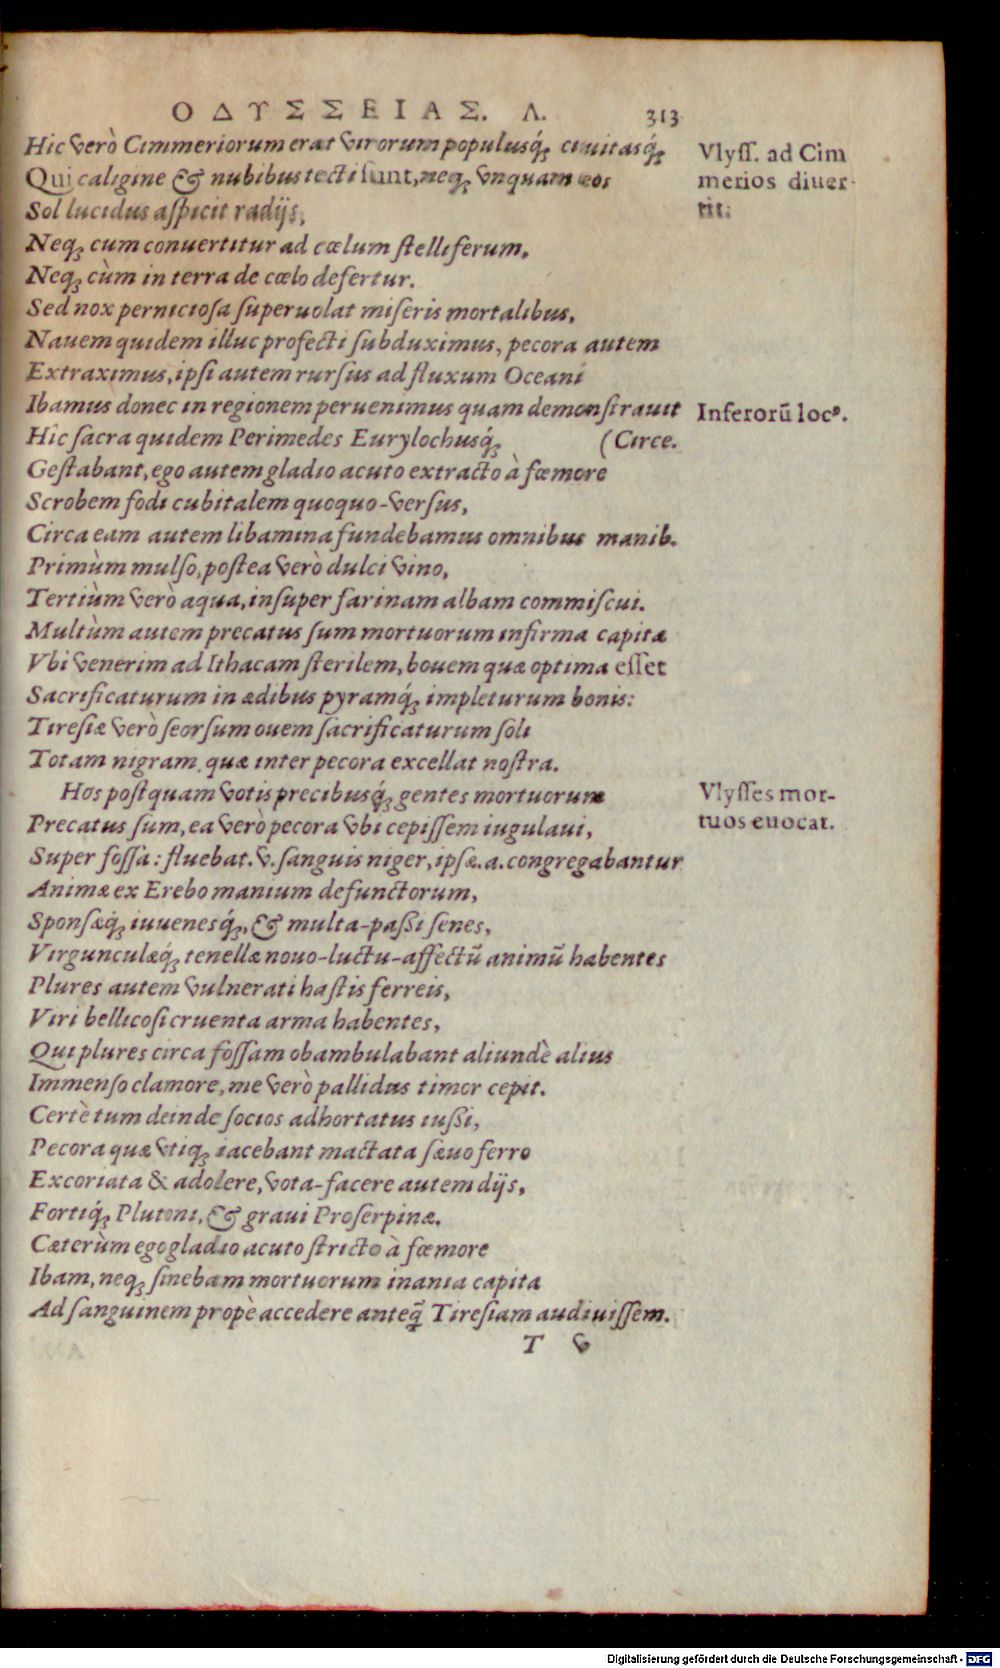 ΟΔΥΣΣΕΙΑΣ. Λ. 313
Hic verò Cimmeriorum erat virorum populusq́; ciuitasq́;
Vlyss. ad Cim
Qui caligine & nubibus tecti sunt, neq; vnquam eos
merios diuer-
Sol lucidus aspicit radijs,
tit:
Neq; cum conuertitur ad cœlum stelliferum,
Neq; cùm in terra de cœlo defertur.
Sed nox perniciosa superuolat miseris mortalibus,
Nauem quidem illuc profecti subduximus, pecora autem
Extraximus, ipsi autem rursus ad fluxum Oceani
Ibamus donec in regionem peruenimus quam demonstrauit
Inferorũ locꝰ.
Hic sacra quidem Perimedes Eurylochusq́; (Circe.
Gestabant, ego autem gladio acuto extracto à fœmore
Scrobem fodi cubitalem quoquo-versus,
Circa eam autem libamina fundebamus omnibus manib.
Primùm mulso, postea verò dulci vino,
Tertiùm verò aqua, insuper farinam albam commiscui.
Multùm autem precatus sum mortuorum infirma capita
Vbi venerim ad Ithacam sterilem, bouem quæ optima esset
Sacrificaturum in ædibus pyramq́; impleturum bonis:
Tiresiæ verò seorsum ouem sacrificaturum soli
Totam nigram, quæ inter pecora excellat nostra.
Hos postquam votis precibusq́; gentes mortuorum
Vlysses mor-
Precatus sum, ea verò pecora vbi cepissem iugulaui,
tuos euocat.
Super fossa: fluebat. v. sanguis niger, ipsæ. a. congregabantur
Animæ ex Erebo manium defunctorum,
Sponsæq́; iuuenesq́;, & multa-passi senes,
Virgunculæq́; tenellæ nouo-luctu-affectũ animũ habentes
Plures autem vulnerati hastis ferreis,
Viri bellicosi cruenta arma habentes,
Qui plures circa fossam obambulabant aliundè alius
Immenso clamore, me verò pallidus timor cepit.
Certè tum deinde socios adhortatus iussi,
Pecora quæ vtiq; iacebant mactata sæuo ferro
Excoriata & adolere, vota-facere autem dijs,
Fortiq́; Plutoni, & graui Proserpinæ.
Cæterùm ego gladio acuto stricto à fœmore
Ibam, neq; sinebam mortuorum inania capita
Ad sanguinem propè accedere anteq̃ Tiresiam audiuissem.
T v
Digitalisierung gefördert durch die Deutsche Forschungsgemeinschaft - DFG